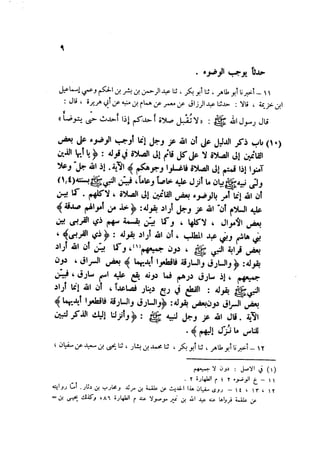 ٩
حدثاً يوجب الوضوء .
١١ – أخبرنا أبو طاهر ، ثنا أبو بكر ، ثنا عبد الرحمن بن بشر بن الحكم وعمي إسماعيل
ابن خزيمة ، قالا : حدثنا عبد الرزاق عن معمر عن همام بن منبه عن أبي هريرة ، قال :
قال رسول الله ﷺ : « لا تُقبل صلاة أحدكم إذا أحدث حتى يتوضأ »
(١٠) باب ذكر الدليل على أن الله عز وجل إنما أوجب الوضوء على بعض
القائمين إلى الصلاة لا على كل قائم إلى الصلاة في قوله : ﴿ يا أيها الذين
آمنوا إذا قمتم إلى الصلاة فاغسلوا وجوهكم ﴾ الآية . إذ الله جل وعلا
ولى نبيه ﷺ بيان ما أنزل عليه خاصاً وعاماً، فبيّن النبي ﷺ بسنته
أن الله إنما أمر بالوضوء بعض القائمين إلى الصلاة ، لا كلهم . كما بين
عليه السلام أن الله عز وجل أراد بقوله : ﴿ خذ من أموالهم صدقة ﴾
بعض الأموال ، لا كلها ، وكما بين بقسمة سهم ذي القربى بين
بني هاشم وبني عبد المطلب ، أن الله أراد بقوله : ﴿ ذي القربى ﴾ ،
بعض قرابة النبي ﷺ ، دون جميعهم (١) ، وكما بيّن أن الله أراد
بقوله : ﴿ والسارق والسارقة فاقطعوا أيديهما ﴾ بعض السراق ، دون
جميعهم ، إذ سارق درهم فما دونه يقع عليه اسم سارق ، فبيّن
النبي ﷺ بقوله : القطع في ربع دينار فصاعداً ، أن الله إنما أراد
بعض السراق دون بعض بقوله : ﴿ والسارق والسارقة فاقطعوا أيديهما ﴾
الآية . قال الله عز وجل لنبيه ﷺ : ﴿ وأنزلنا إليك الذكر لتبين
للناس ما نُزّل إليهم ﴾ .
١٢ – أخبرنا أبو طاهر ، ثنا أبو بكر ، ثنا محمد بن بشار ، ثنا يحيى بن سعيد عن سفيان ؛
(١) في الاصل : دون لا جميعهم
١١ – خ الوضوء ٢ ؛ م الطهارة ٢ .
١٢ ، ١٣ ، ١٤ – روى سفيان هذا الحديث عن علقمة بن مرثد ومحارب بن دثار. أمّا روايته
عن علقمة فرواها عنه عبد الله بن نمير موصولا عند م الطهارة ٨٦، وكذلك يحيى بن =